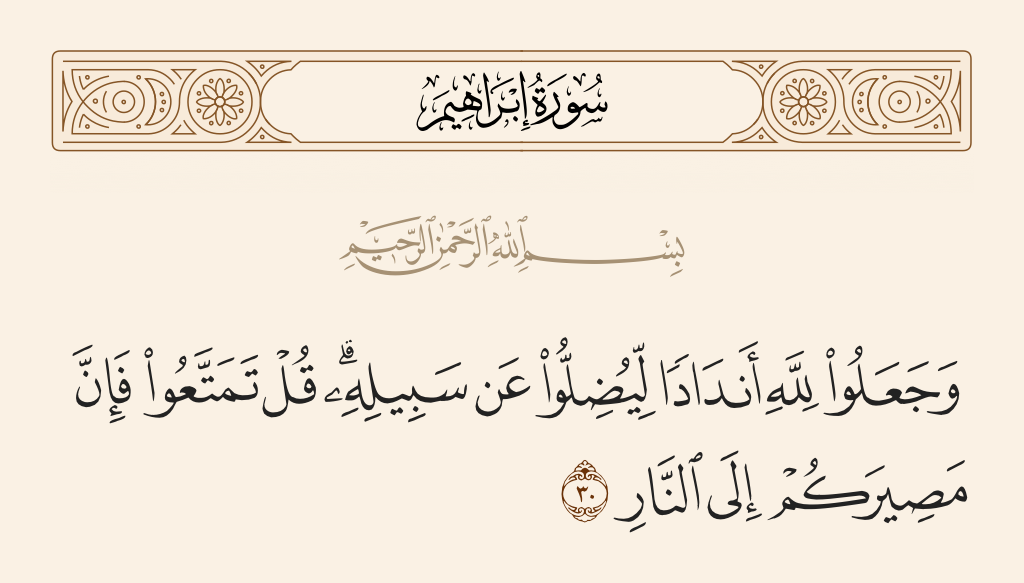 سُورَةُ إِبْرَاهِيمَ
بِسْمِ ٱللَّهِ ٱلرَّحْمَٰنِ ٱلرَّحِيمِ
وَجَعَلُوا۟ لِلَّهِ أَندَادًا لِّيُضِلُّوا۟ عَن سَبِيلِهِۦ ۗ قُلْ تَمَتَّعُوا۟ فَإِنَّ
مَصِيرَكُمْ إِلَى ٱلنَّارِ ٣٠